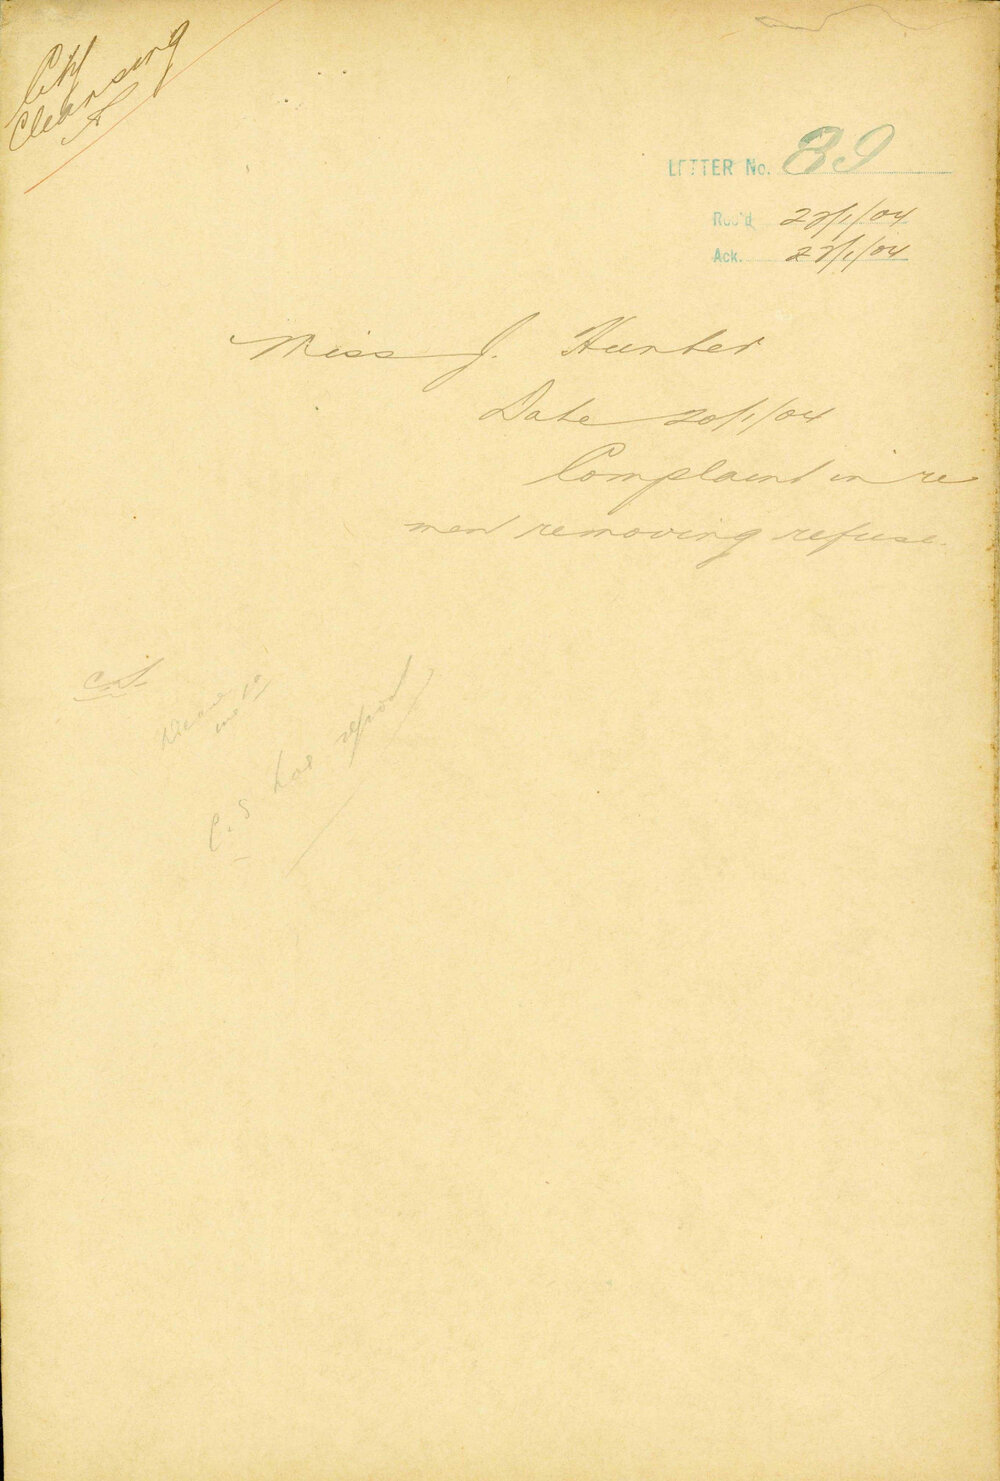 City
Cleansing
LETTER No. 89
Rec'd 22/1/04
Ack. 22/1/04
Miss J. Hunter
Date 20/1/04
Complaint in re
men removing refuse.
C.S.
C.S. has report